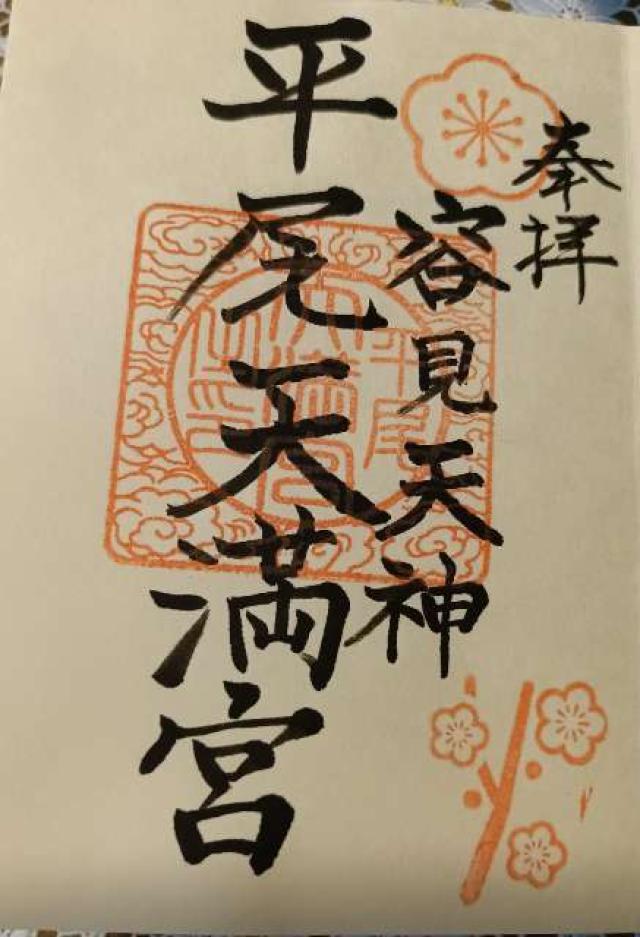 奉拝
容見天神
平尾天満宮
平尾